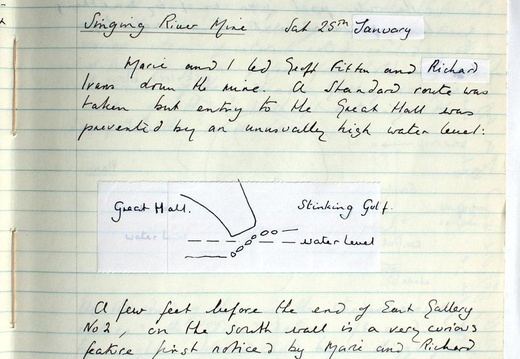 Singing River Mine Sat 25th January
Marie and I led Geoff Fitton and Richard
Ivans down the mine. A Standard route was
taken but entry to the Great Hall was
prevented by an unusually high water level:
Great Hall. Stinking Gulf.
water level
A few feet before the end of East Gallery
No 2, on the south wall is a very curious
feature first noticed by Marie and Richard